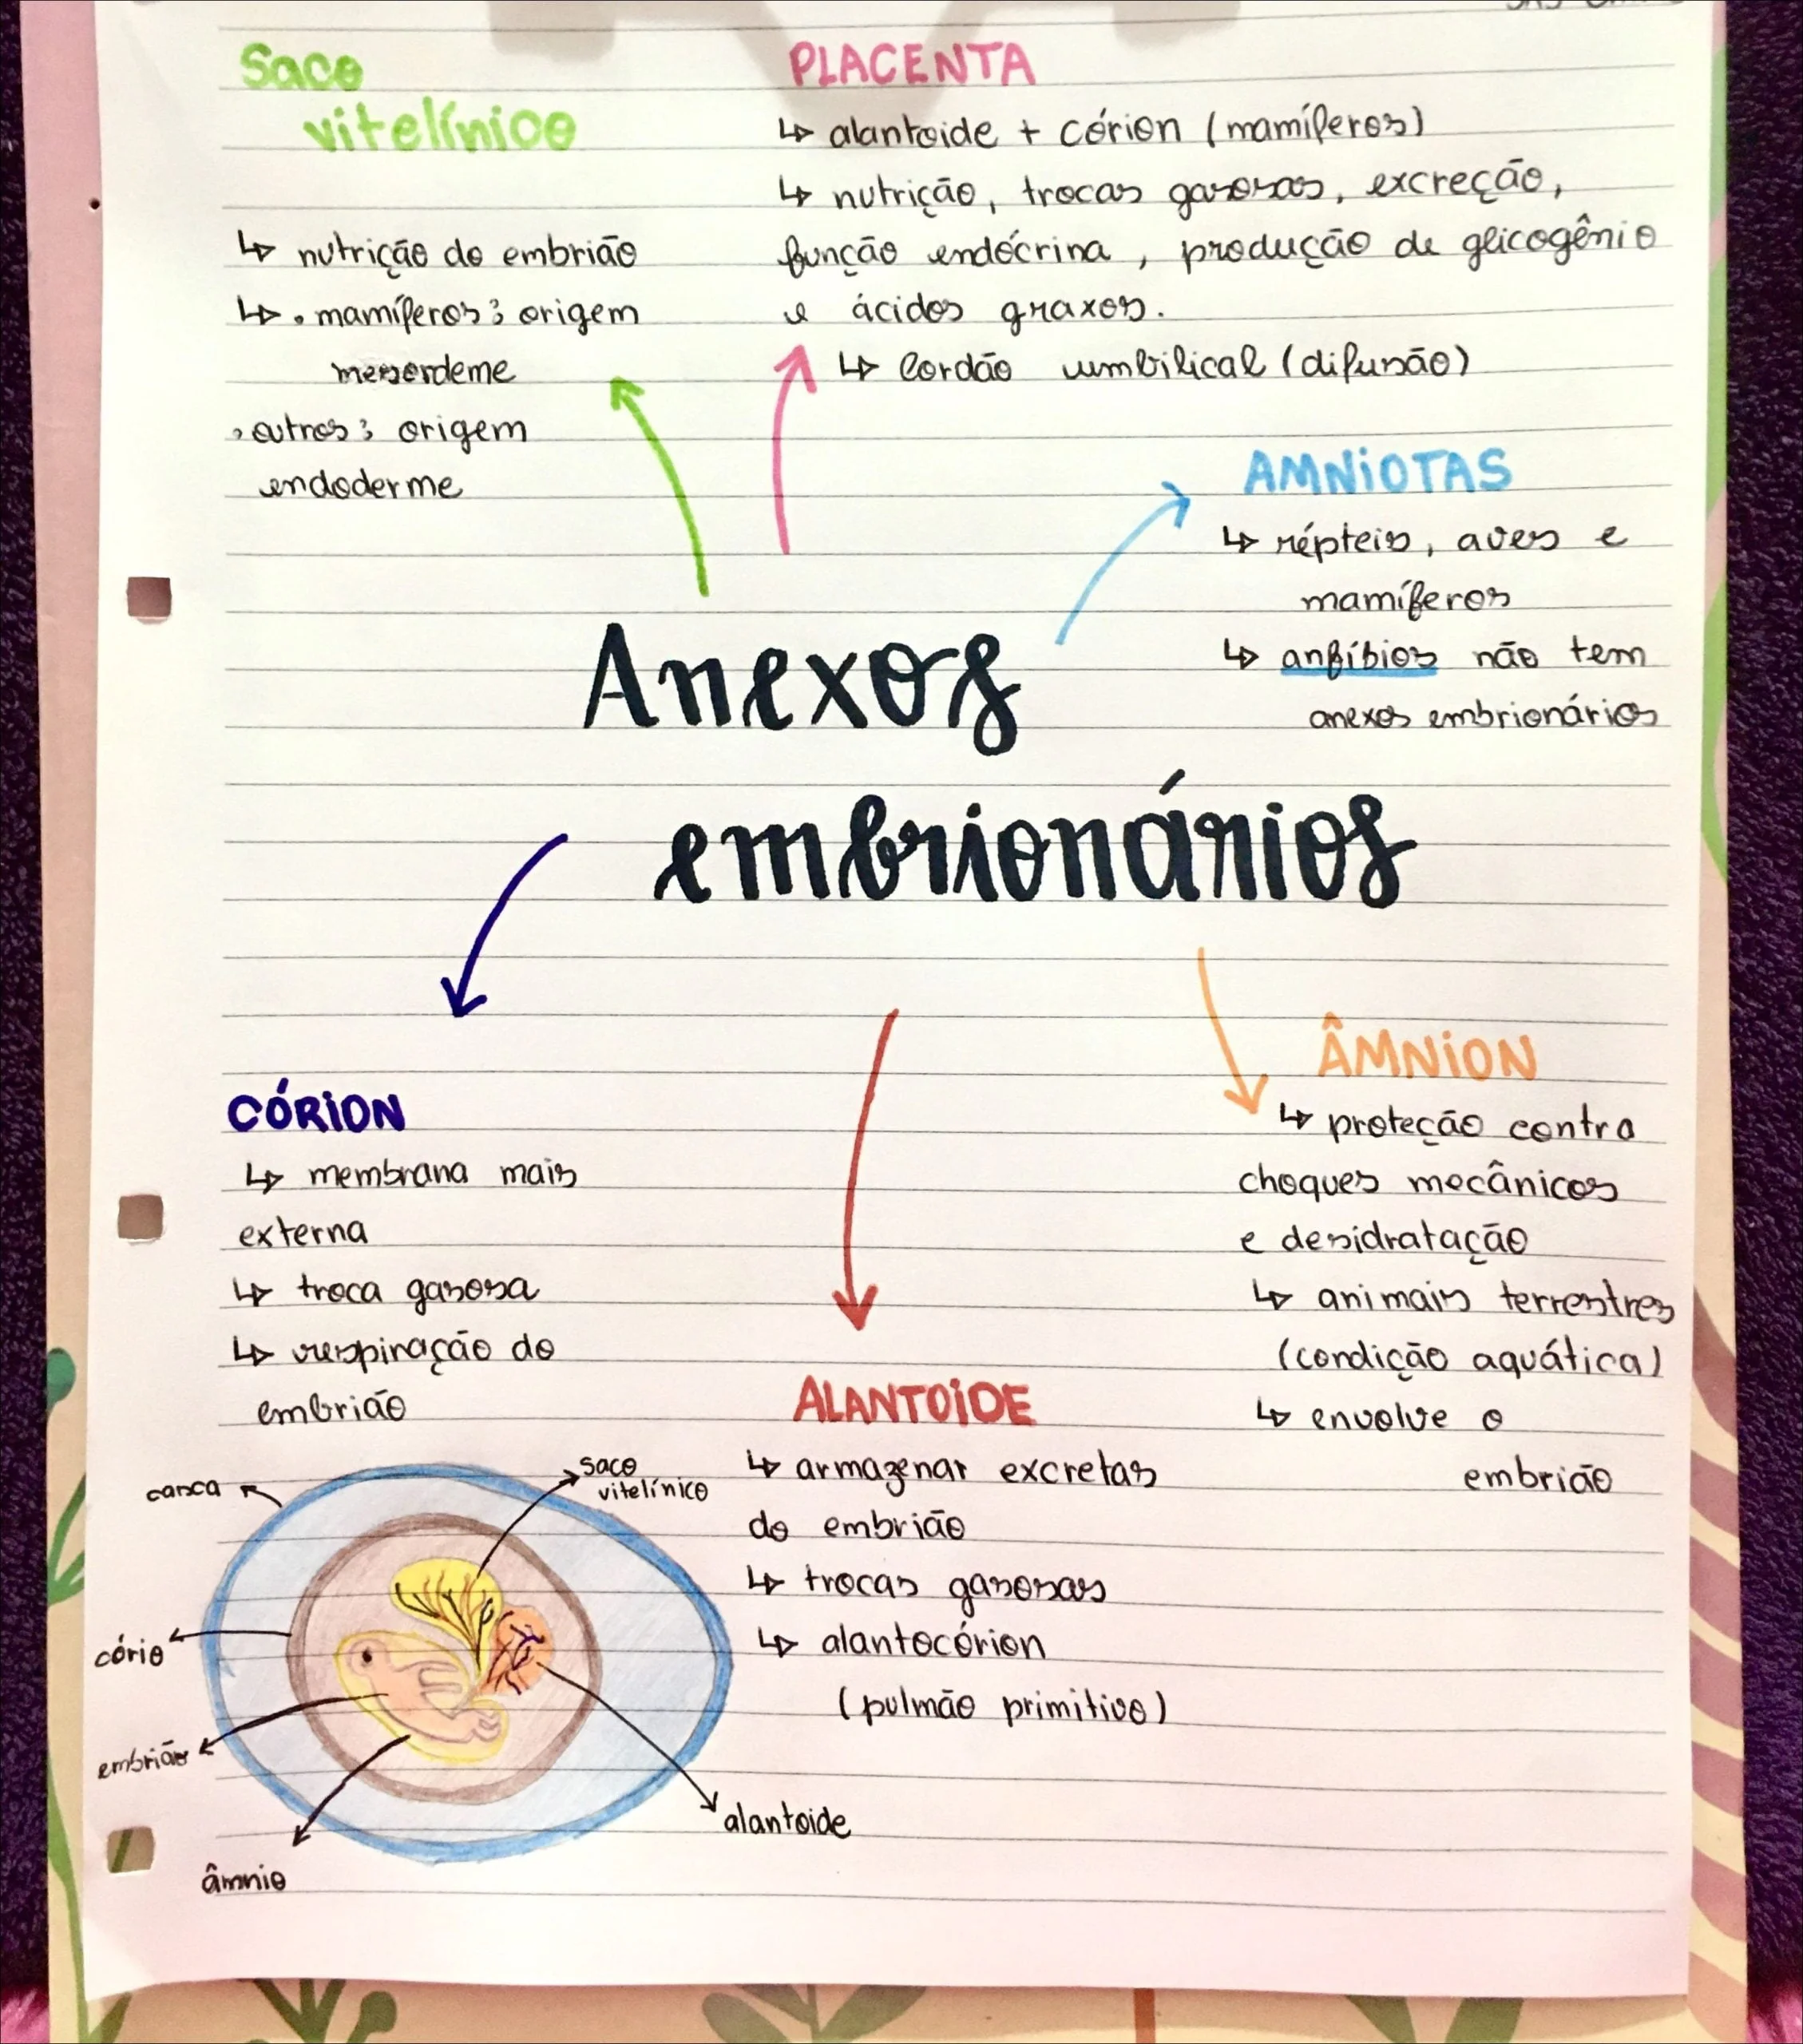 Saco
vitelínico
↳ nutrição do embrião
↳ • mamíferos: origem
mesorderme
• outros: origem
endoderme
PLACENTA
↳ alantoide + córion (mamíferos)
↳ nutrição, trocas gasosas, excreção,
função endócrina, produção de glicogênio
e ácidos graxos.
↳ Cordão umbilical (difusão)
AMNIOTAS
↳ répteis, aves e
mamíferos
↳ anfíbios não tem
anexos embrionários
Anexos
embrionários
CÓRION
↳ membrana mais
externa
↳ troca gasosa
↳ respiração do
embrião
ALANTOIDE
↳ armazenar excretas
do embrião
↳ trocas gasosas
↳ alantocórion
(pulmão primitivo)
ÂMNION
↳ proteção contra
choques mecânicos
e desidratação
↳ animais terrestres
(condição aquática)
↳ envolve o
embrião
casca
saco
vitelínico
cório
embrião
âmnio
alantoide